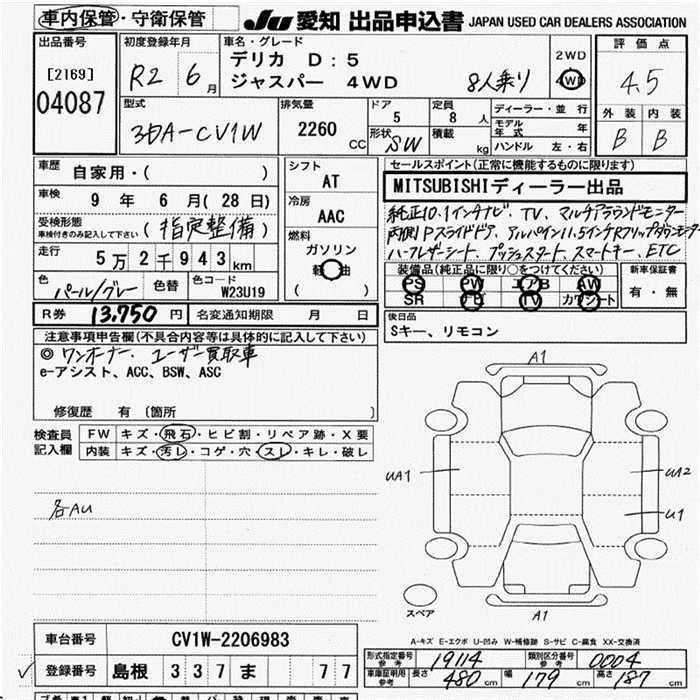 車内保管・守衛保管
JU 愛知 出品申込書 JAPAN USED CAR DEALERS ASSOCIATION
出品番号
[2169]
04087
初度登録年月
R2 6月
車名・グレード
デリカ D:5
ジャスパー 4WD 8人乗り
2WD
4WD
評価点
4.5
外装 内装
B B
型式
3DA-CV1W
排気量
2260 CC
ドア
5
形状
SW
定員
8 人
積載
kg
ディーラー・並行
モデル年式 年
ハンドル 左・右
車歴
自家用・( )
車検
9 年 6 月 (28 日)
受検形態
車検付きのみ記入して下さい
(指定整備)
走行
5万2千943 km
色
パール/グレー
色替
色コード
W23U19
シフト
AT
冷房
AAC
燃料
ガソリン
軽油
( )
セールスポイント(正常に機能するものに限ります)
MITSUBISHIディーラー出品
純正10.1インチナビ、TV、マルチアラウンドモニター
両側Pスライドドア、アルパイン11.5インチRフリップダウンモニター
ハーフレザーシート、プッシュスタート、スマートキー、ETC
装備品(純正品に限り○をつけてください)
PS PW エアB AW
SR ナビ TV カワシート
新車保証書
有・無
R券 13,750 円
名変通知期限 月 日
後日品
Sキー、リモコン
注意事項申告欄(不具合内容等は具体的に記入して下さい)
◎ ワンオーナー、ユーザー買取車
e-アシスト、ACC、BSW、ASC
修復歴 有 〔箇所 〕
検査員記入欄
FW キズ・飛石・ヒビ割・リペア跡・X要
内装 キズ・汚レ・コゲ・穴・スレ・キレ・破レ
各AU
A1
UA1
UA2
U1
A1
スペア
A-キズ E-エクボ U-凹み W-補修跡 S-サビ C-腐食 XX-交換済
車台番号 CV1W-2206983
登録番号 島根 337 ま 77
形式指定番号
参考
19114
類別区分番号
参考
0004
車庫証明用
参考
長さ 480 cm 幅 179 cm 高さ 187 cm